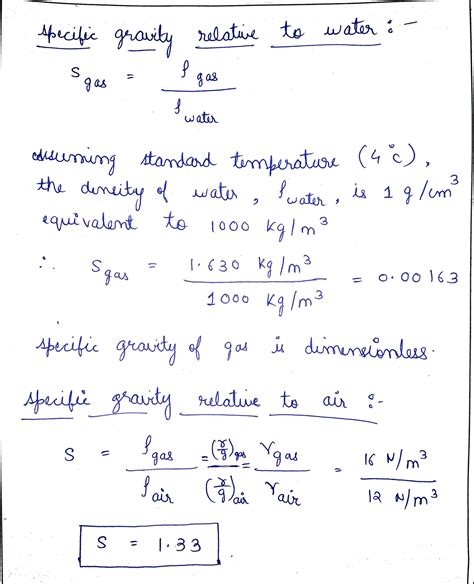 specific gravity relative to water :-
S gas = ρ gas / ρ water
assuming standard temperature (4°c),
the density of water, ρ water, is 1 g/cm³
equivalent to 1000 Kg/m³
∴ S gas = 1.630 Kg/m³ / 1000 Kg/m³ = 0.00163
specific gravity of gas is dimensionless.
specific gravity relative to air :-
S = ρ gas / ρ air = (γ/g) gas / (γ/g) air = γ gas / γ air = 16 N/m³ / 12 N/m³
S = 1.33